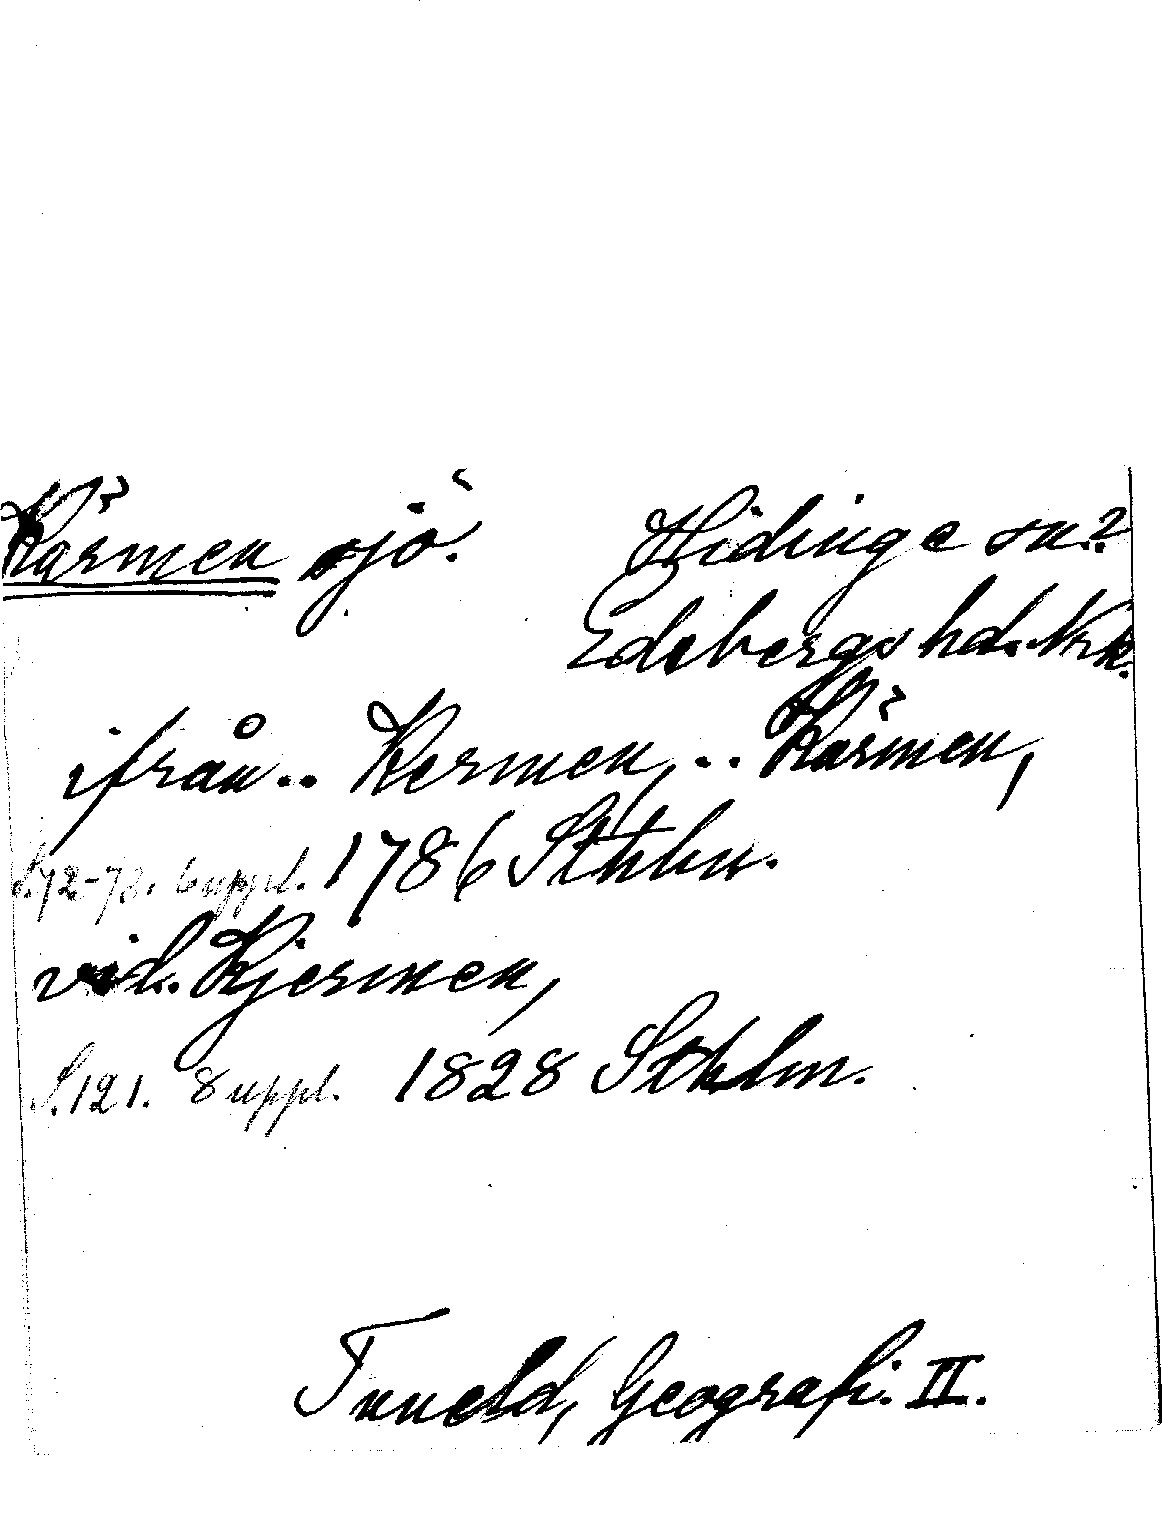 Kärmen sjö. Hidinge sn?
Edsbergs hd. Nrk.
ifrån.. Kermen, .. Kärmen,
S.72-73. Suppl. 1786 Sthlm.
vid. Kjermen,
S.121. Suppl. 1828 Sthlm.
Tuneld, Geografi. II.